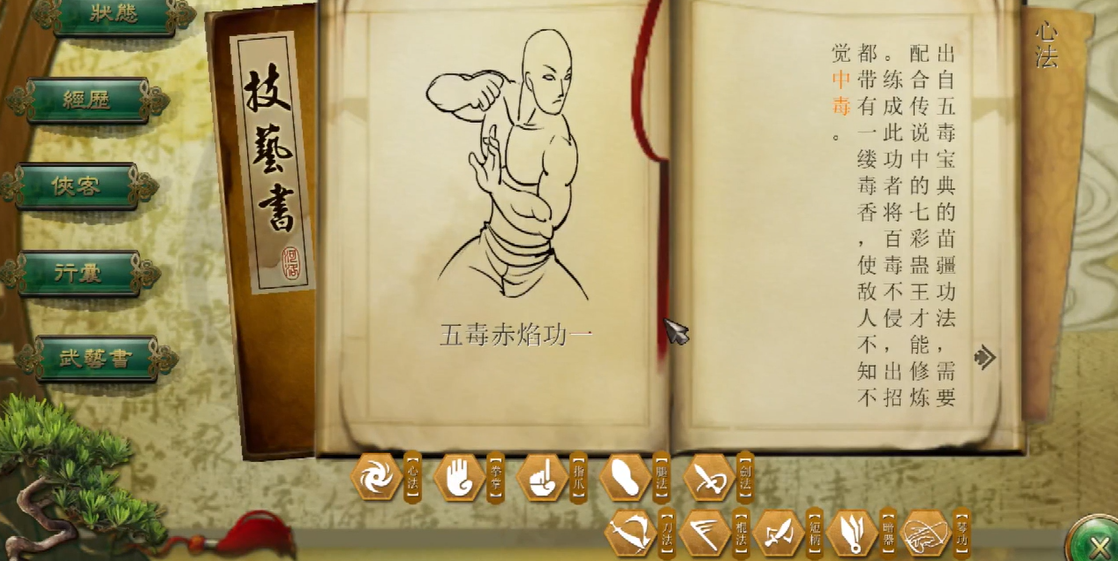 狀態
經歷
俠客
行囊
武藝書
技藝書
五毒赤焰功一
心法
出自五毒宝典的苗疆功法，需要
配合传说中的七彩蛊王才能修炼
。练成此功者将百毒不侵，出招
都带有一缕毒香，使敌人不知不
觉中毒。
【心法】
【拳掌】
【指爪】
【腿法】
【剑法】
【刀法】
【棍法】
【短柄】
【暗器】
【琴功】